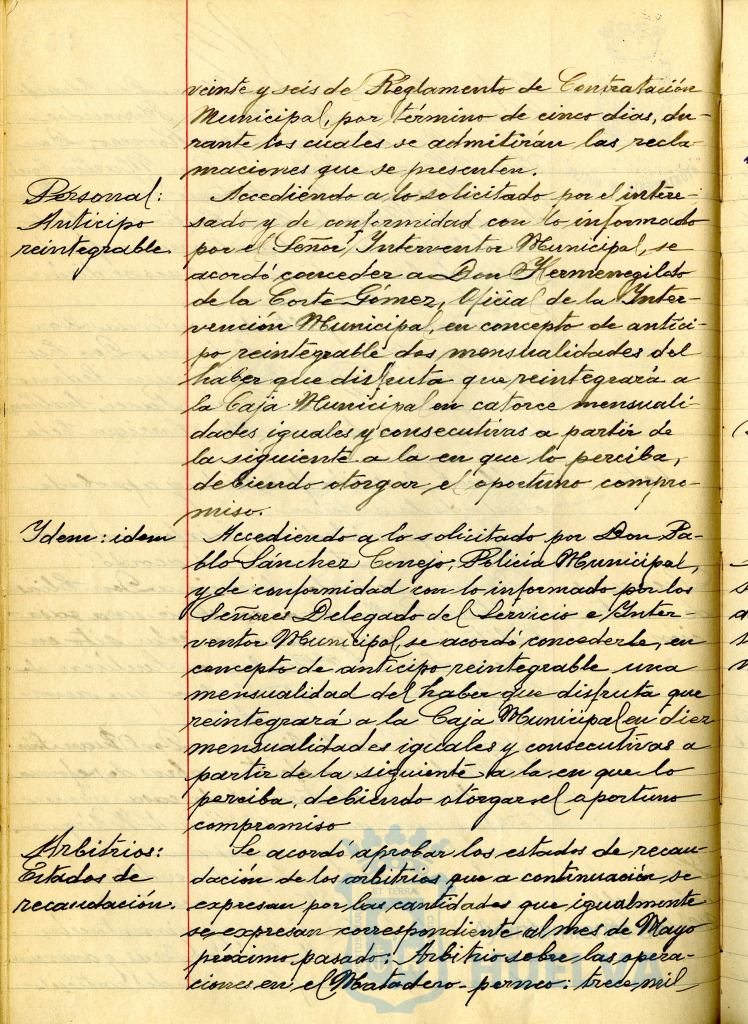 veinte y seis de Reglamento de Contratación
Municipal, por término de cinco dias, du-
rante los cuales se admitirán las recla-
maciones que se presenten.
Personal:
Anticipo
reintegrable
Accediendo a lo solicitado por el intere-
sado y de conformidad con lo informado
por el Señor Interventor Municipal, se
acordó conceder a Don Hermenegildo
de la Corte Gómez, Oficial de la Inter-
vención Municipal, en concepto de antici-
po reintegrable dos mensualidades del
haber que disfruta que reintegrará a
la Caja Municipal en catorce mensuali-
dades iguales y consecutivas a partir de
la siguiente a la en que lo perciba,
debiendo otorgar el oportuno compro-
miso.
Ydem: idem
Accediendo a lo solicitado por Don Pa-
blo Sánchez Conejo, Policia Municipal,
y de conformidad con lo informado por los
Señores Delegado del Servicio e Inter-
ventor Municipal, se acordó concederle, en
concepto de anticipo reintegrable una
mensualidad del haber que disfruta que
reintegrará a la Caja Municipal en diez
mensualidades iguales y consecutivas a
partir de la siguiente a la en que lo
perciba, debiendo otorgar el oportuno
compromiso
Arbitrios:
Estados de
recaudación.
Se acordo aprobar los estados de recau-
dación de los arbitrios que a continuación se
expresan por las cantidades que igualmente
se expresan correspondiente al mes de Mayo
próximo pasado: Arbitrio sobre las opera-
ciones en el Matadero perneo: trece mil
HUELVA